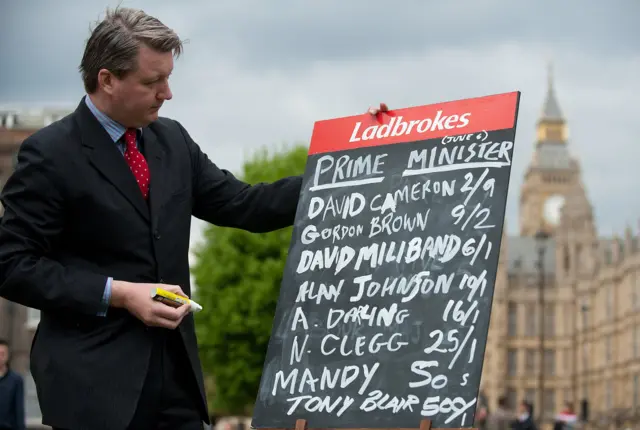 Ladbrokes
(JUNE 6)
PRIME MINISTER
DAVID CAMERON 2/9
GORDON BROWN 9/2
DAVID MILIBAND 6/1
ALAN JOHNSON 10/1
A. DARLING 16/1
N. CLEGG 25/1
MANDY 50s
TONY BLAIR 500/1